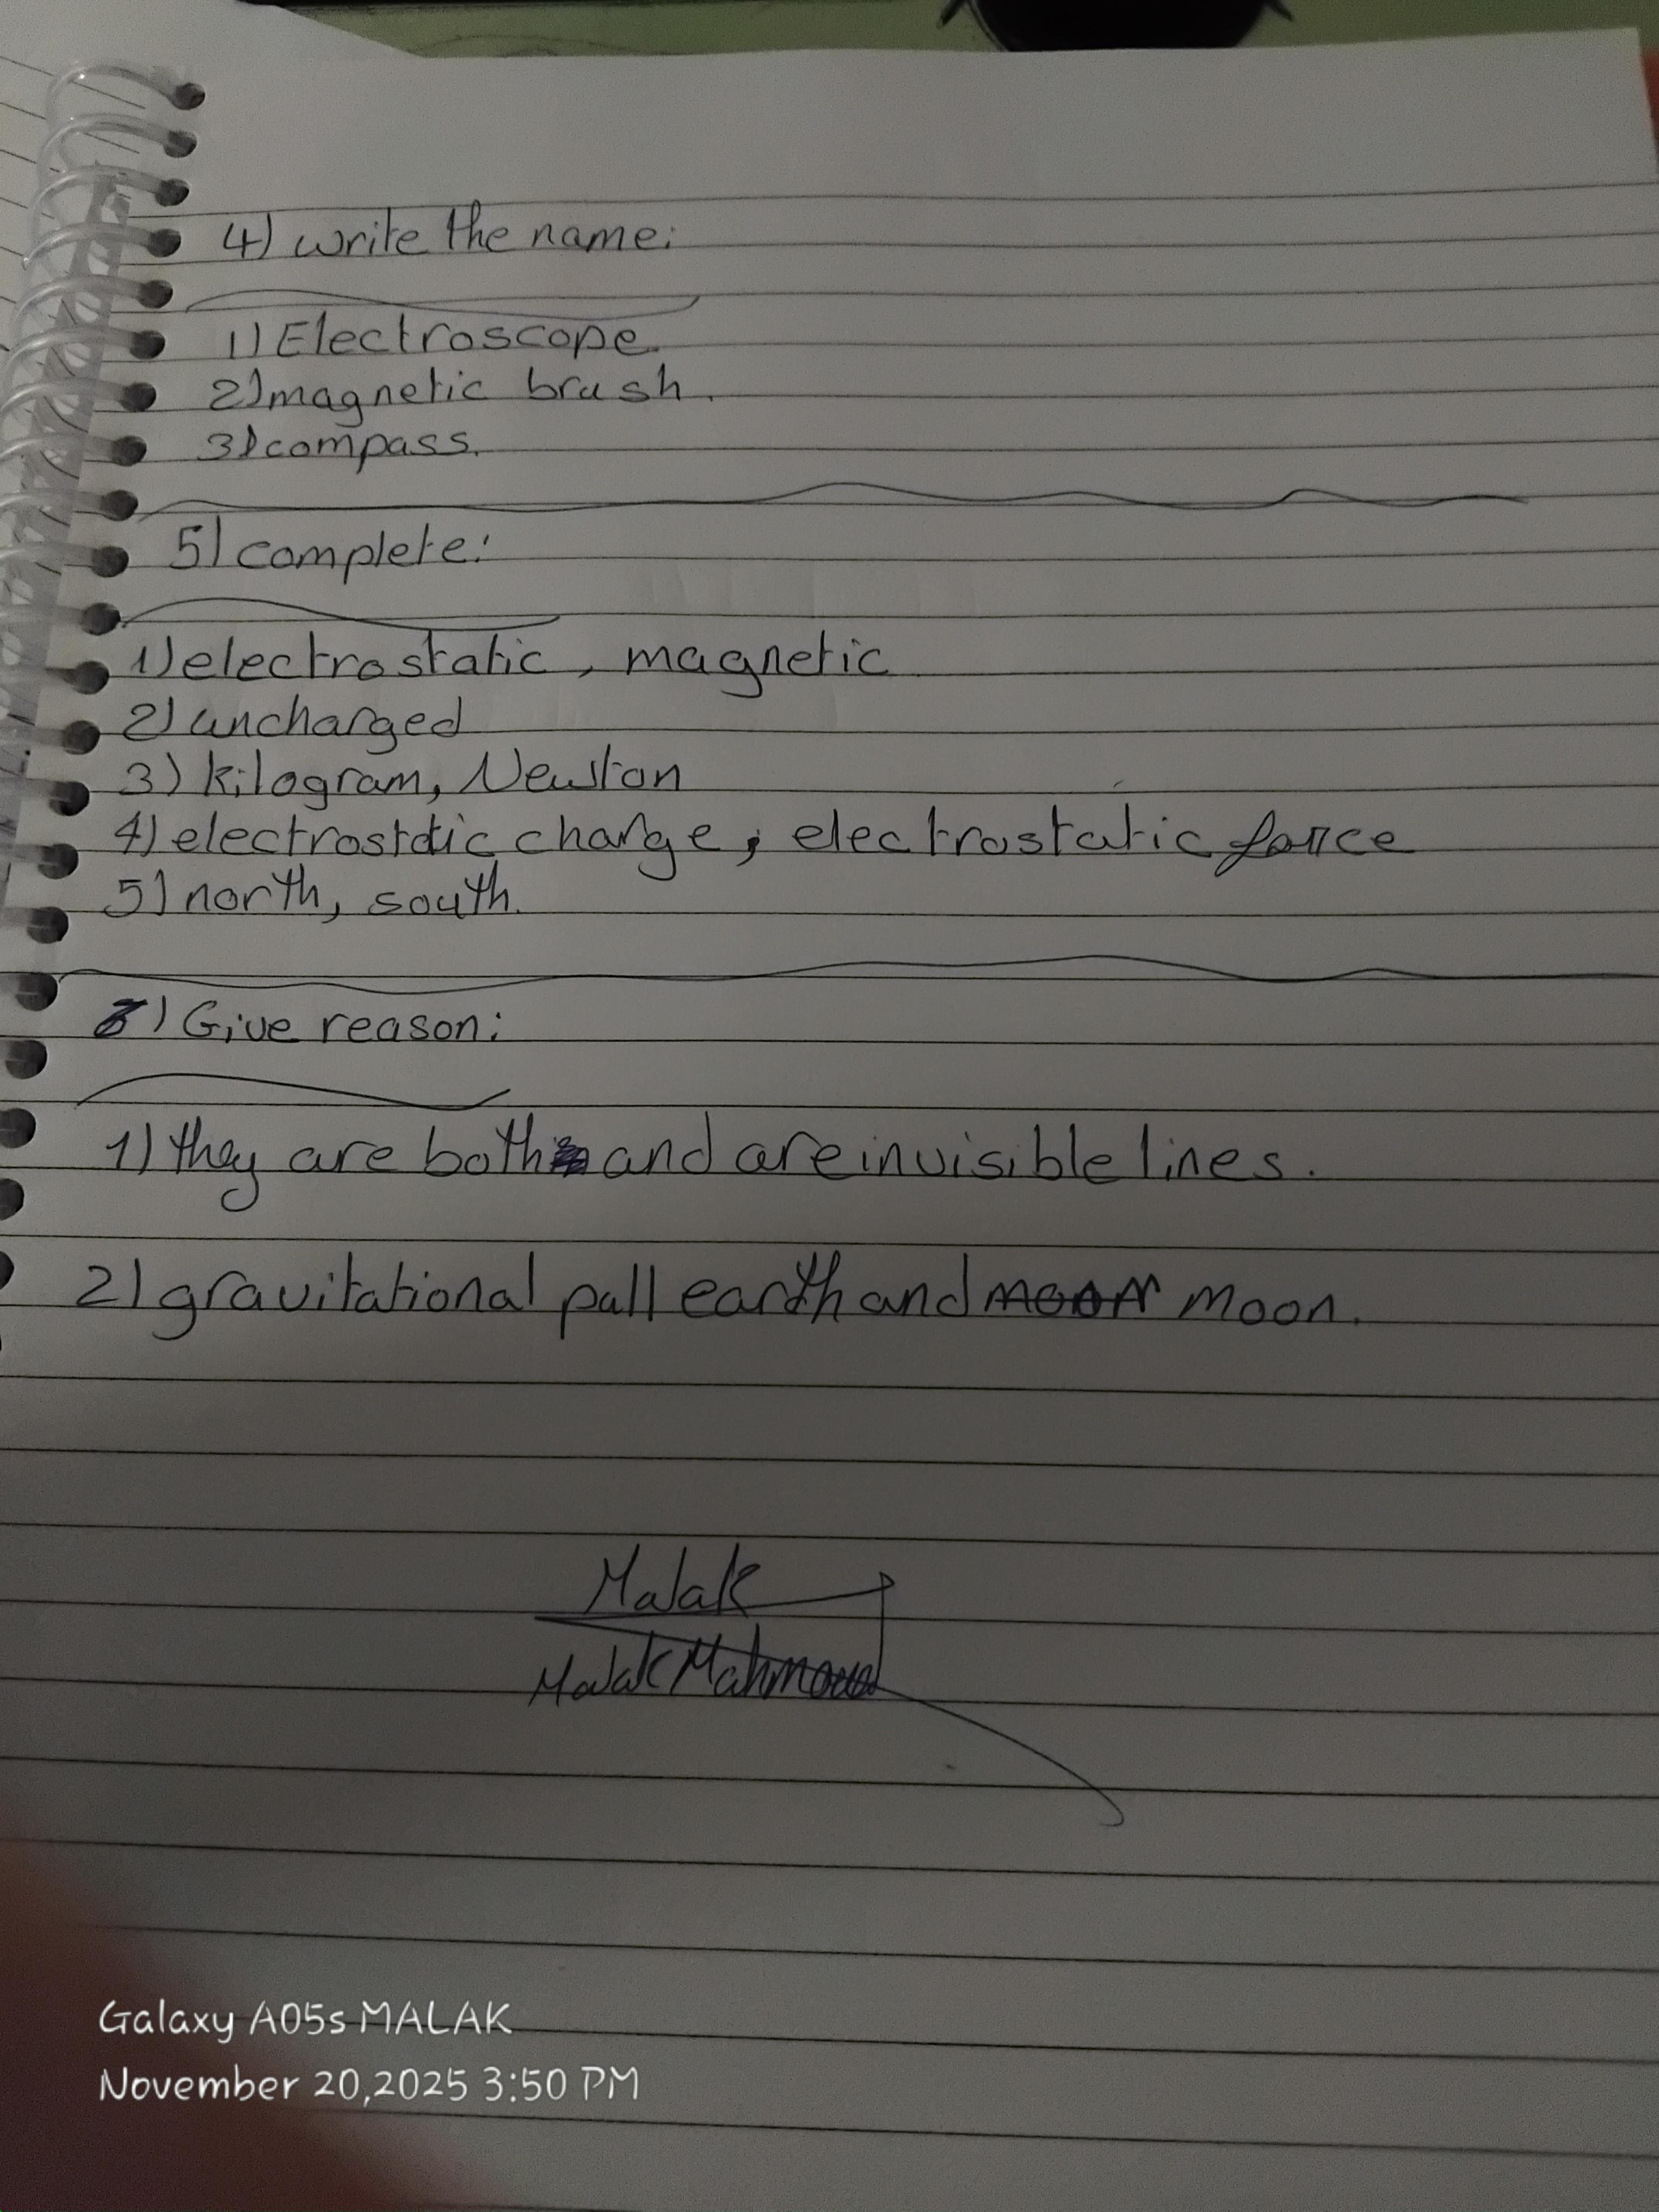 4) write the name:
1) Electroscope.
2) magnetic brush.
3) compass.
5) complete:
1) electrostatic, magnetic
2) uncharged
3) kilogram, Newton
4) electrostatic charge, electrostatic force
5) north, south.
) Give reason:
1) they are both and are invisible lines.
2) gravitational pull earth and moon moon.
Malak
Malak Mahmoud
Galaxy A05s MALAK
November 20,2025 3:50 PM